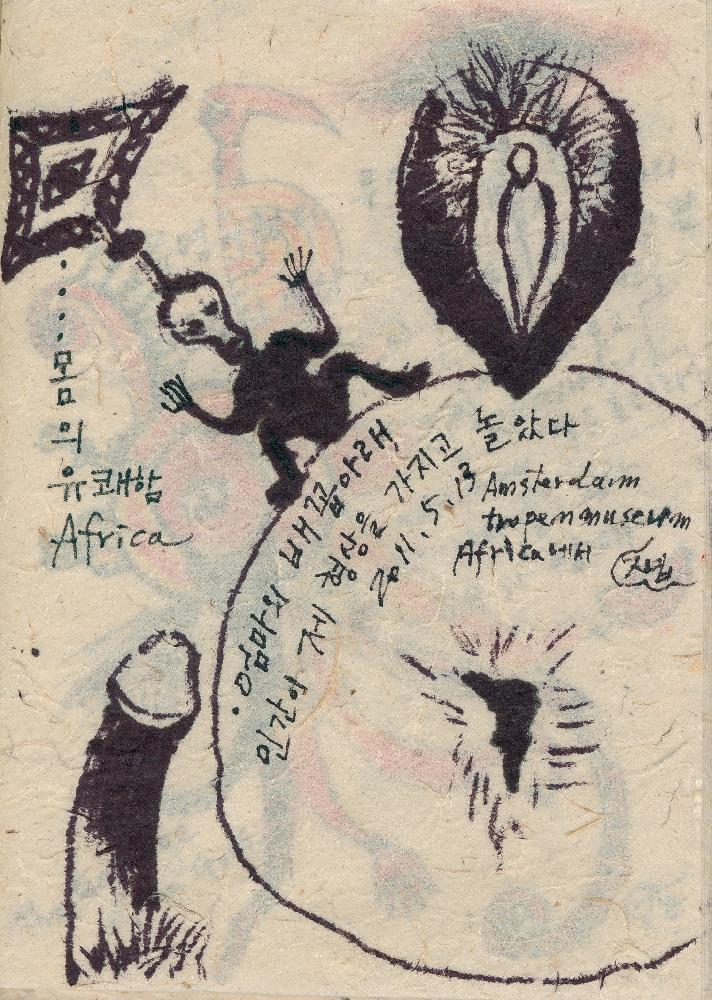 .....몸
의
유쾌함
Africa
.엄마의 배꼽아래
인간이 제 형상을 가지고 놀았다
2011. 5. 13 Amsterdam
tropenmuseum
Africa에서